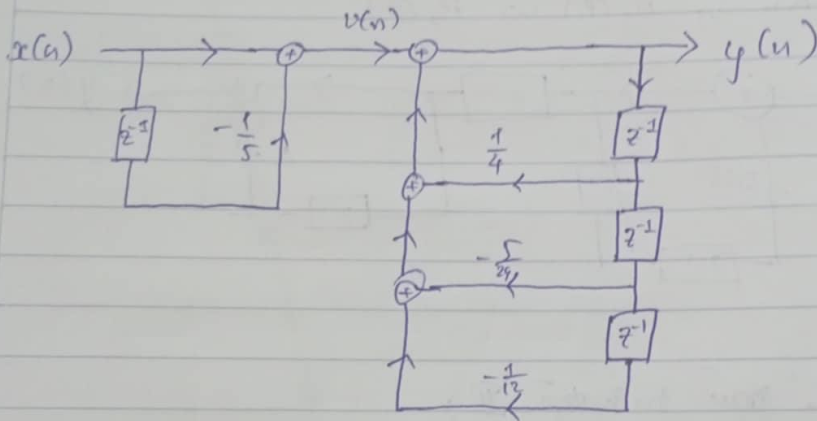 v(n)
x(n) + + y(n)
z⁻¹ -1/5 z⁻¹
1/4
+
z⁻¹
-5/24
+
z⁻¹
-1/12